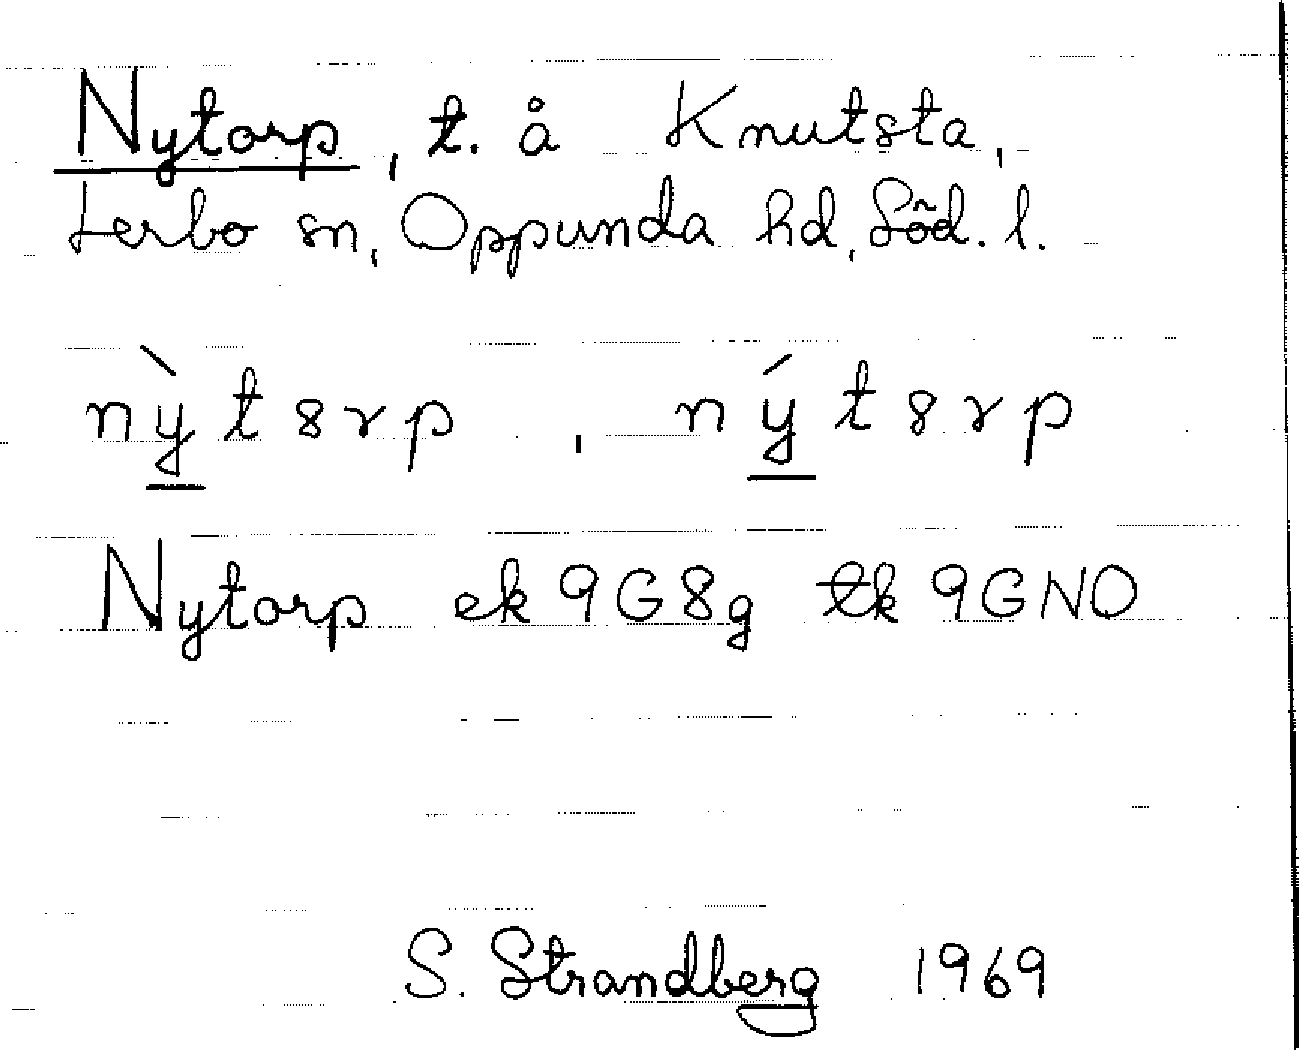 Nytorp, t. å Knutsta,
Lerbo sn, Oppunda hd, Söd. l.
nỳt8rp , nýt8rp
Nytorp ek 9G8g tk 9GNO
S. Strandberg 1969